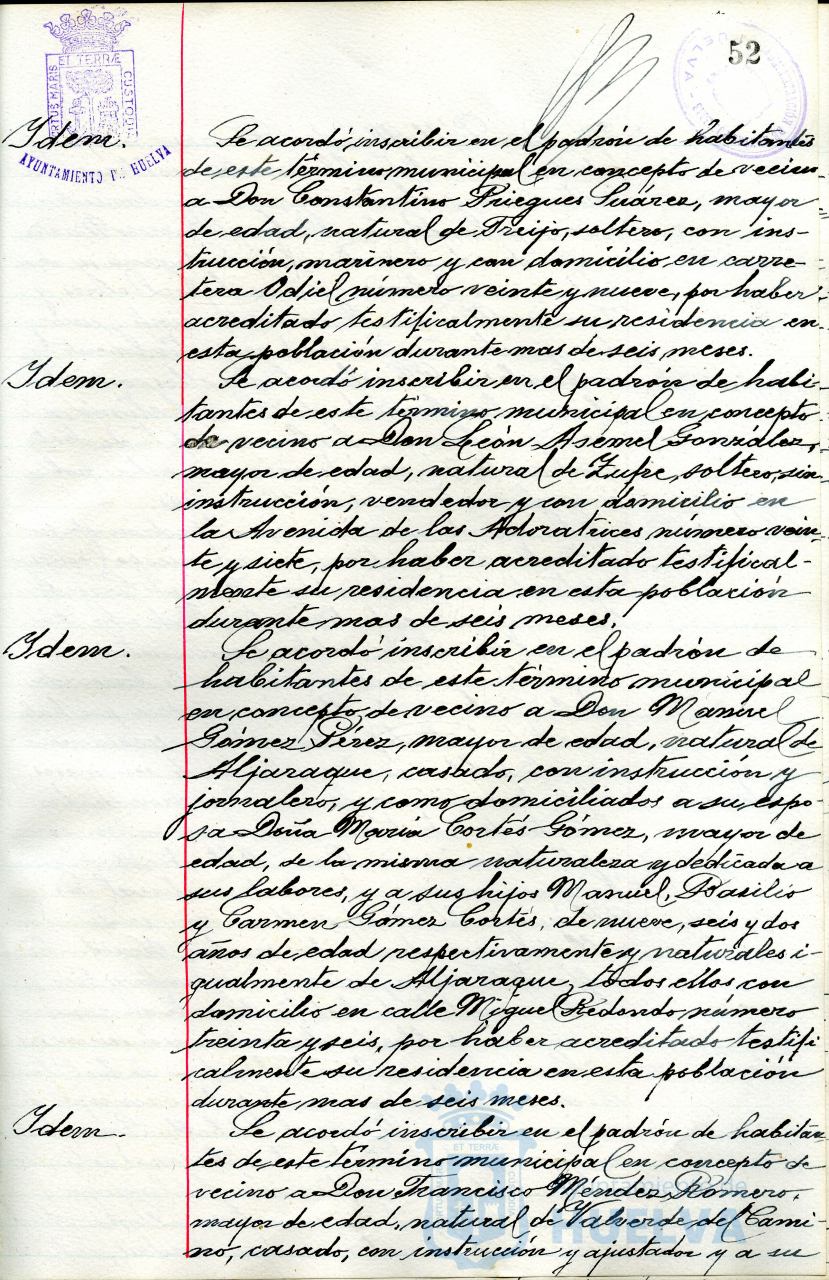 52
ET TERRÆ
CUSTODIA
AYUNTAMIENTO DE HUELVA
Idem.
Se acordó inscribir en el padrón de habitantes
de este término municipal en concepto de vecino
a Don Constantino Priegues Suárez, mayor
de edad, natural de Treijo, soltero, con ins-
trucción, marinero y con domicilio en carre-
tera Odiel número veinte y nueve, por haber
acreditado testificalmente su residencia en
esta población durante mas de seis meses.
Idem.
Se acordó inscribir en el padrón de habi-
tantes de este término municipal en concepto
de vecino a Don León Asemel González,
mayor de edad, natural de Zufre, soltero, sin
instrucción, vendedor y con domicilio en
la Avenida de las Adoratrices número vein-
te y siete, por haber acreditado testifical-
mente su residencia en esta población
durante mas de seis meses.
Idem.
Se acordó inscribir en el padrón de
habitantes de este término municipal
en concepto de vecino a Don Manuel
Gómez Pérez, mayor de edad, natural de
Aljaraque, casado, con instrucción y
jornalero, y como domiciliados a su espo-
sa Doña María Cortés Gómez, mayor de
edad, de la misma naturaleza y dedicada a
sus labores, y a sus hijos Manuel, Basilio
y Carmen Gómez Cortés, de nueve, seis y dos
años de edad respectivamente y naturales i-
gualmente de Aljaraque, todos ellos con
domicilio en calle Miguel Redondo número
treinta y seis, por haber acreditado testifi
calmente su residencia en esta población
durante mas de seis meses.
Idem.
Se acordó inscribir en el padrón de habitan-
tes de este término municipal en concepto de
vecino a Don Francisco Méndez Romero,
mayor de edad, natural de Valverde del Cami-
no, casado, con instrucción y ajustador y a su
HUELVA